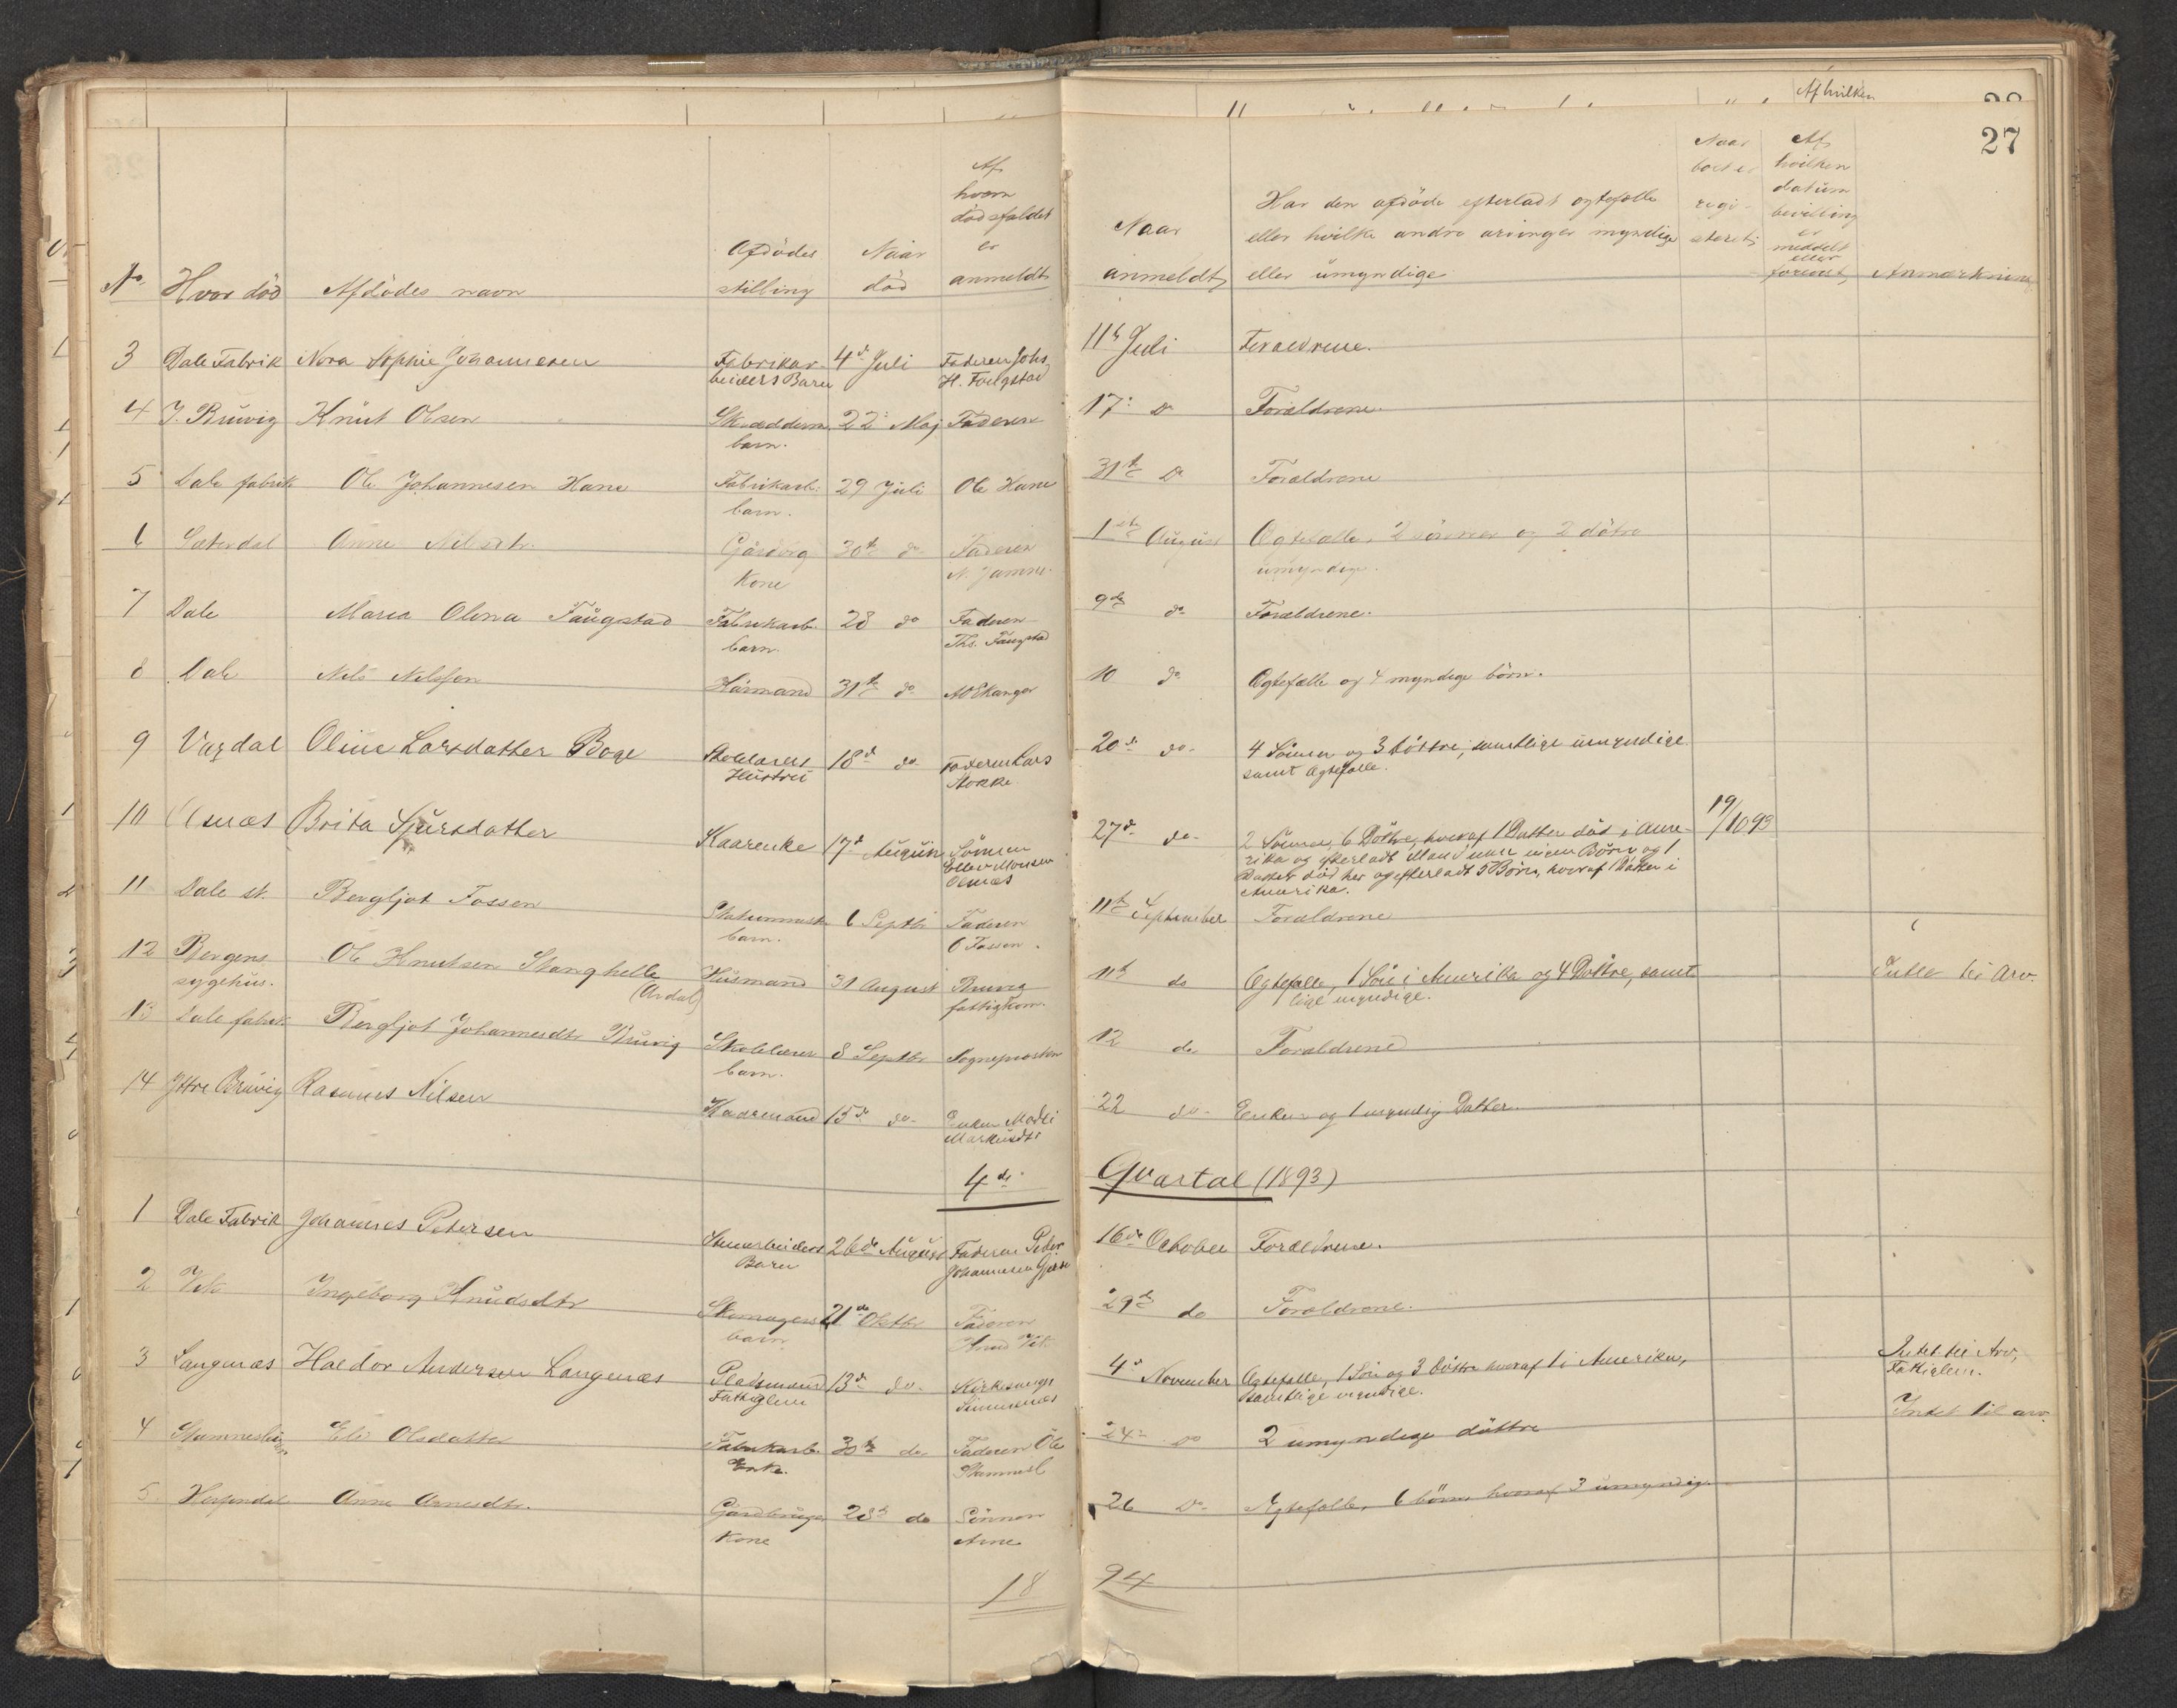 Af hvilken
27
No. Hvor död Afdödes navn Afdödes stilling Naar död Af hvem dödsfaldet er anmeldt Naar anmeldt, Har den afdöde efterladt ægtefælle eller hvilke andre arvinger myndige eller umyndige Naar boet er regi-steret, Af hvilken datum bevilling er meddelt eller foreviist, Anmærkning
3 Dale Fabrik Nora Sophie Johannesen Fabrikar- 4de Juli Faderen Johs 11te Juli Forældrene.
beiders Barn H. Faugstad
4 Y. Bruvig Knut Olsen Skrædderm. 22de Maj Faderen 17de Do Forældrene.
barn.
5 Dale fabrik Ole Johannesen Hane Fabrikarb. 29 Juli Ole Hane 31te Do Forældrene
barn.
6 Sæterdal Anne Nilsdtr. Gårdbrg 30te do Faderen 1ste August Ægtefælle, 2 sönner og 2 dötre
Kone N. Jamne. umyndige.
7 Dale Maria Olena Faugstad Fabrikarb. 28 do Faderen 9de do Forældrene.
barn. Ths. Faugstad
8 Dale Nils Nilssen Kårmand 31te do 10 do Ægtefælle og 4 myndige börn.
9 Vaxdal Oline Larsdatter Boge Skolelærers 18de do Faderen Lars 20de do. 4 Sönner og 3 Döttre, samtlige umyndige
Hustru Stokke samt Ægtefælle.
10 Brita Sjursdatter Kaarenke 17de August Sönnen 27de do. 2 Sönner, 6 Döttre, hvoraf 1 Datter död i Ame- 19/10 93
rika og efterladt Mand men ingen Börn og 1
Datter död her og efterladt 5 Börn, hvoraf 1 Datter i
Amerika.
11 Dale st. Bergljot Fossen Stationsmest. 6 Septbr Faderen 11te September Forældrene
barn. O Fossen.
12 Bergens Ole Knutsen Stanghelle Husmand 31 August Bruvig 11te do Ægtefælle, 1 Sön i Amerika og 4 Döttre, samt- Intet til Arv.
sygehus. (Ardal) fattigkom. lige myndige.
13 Dale fabrik Bergljot Johannesdtr Bruvig Skolelærer 8 Septbr Sognepresten 12 do Forældrene
barn.
14 Ytre Bruvig Rasmus Nilsen Kaarmand 15de do. Enken 22 do. Enken og 1 myndig Datter.
Markusdtr
4de Qvartal (1893)
1 Dale Fabrik Johannes Petersen Stenarbeiders 26de August Faderen Peder 16de October Forældrene.
Barn Johannesen
2 Vik Ingeborg Knudsdtr Skomagers 21de Oktbr Faderen 29de do Forældrene.
barn Knud Vik
3 Langenæs Haldor Andersen Langenæs Pladsmand 13de do. Kirkesanger 4de November Ægtefælle, 1 Sön og 3 Döttre hvoraf 1 i Amerika, Intet til Arv,
Fattiglem samtlige myndige. Fattiglem.
4 Eli Olsdatter Fabrikarb. 30te do Faderen Ole 24de do 2 umyndige döttre Intet til arv.
Enke. Stamnesl
5 Anne Arnesdtr. Gårdbruger 28de do Sönnen 26 do. Ægtefælle, 6 börn hvoraf 3 umyndige
Kone Arne
18 94